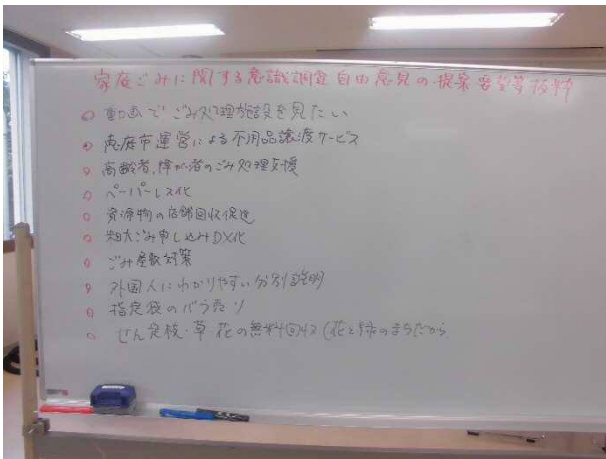 家庭ごみに関する意識調査自由意見の提案要望等抜粋
○ 動画でごみ処理施設を見たい
○ 恵庭市運営による不用品譲渡サービス
○ 高齢者,障がい者のごみ処理支援
○ ペーパーレス化
○ 資源物の店舗回収促進
○ 粗大ごみ申し込みDX化
○ ごみ屋敷対策
○ 外国人にわかりやすい分別説明
○ 指定袋のバラ売り
○ せん定枝・草・花の無料回収(花と緑のまちだから